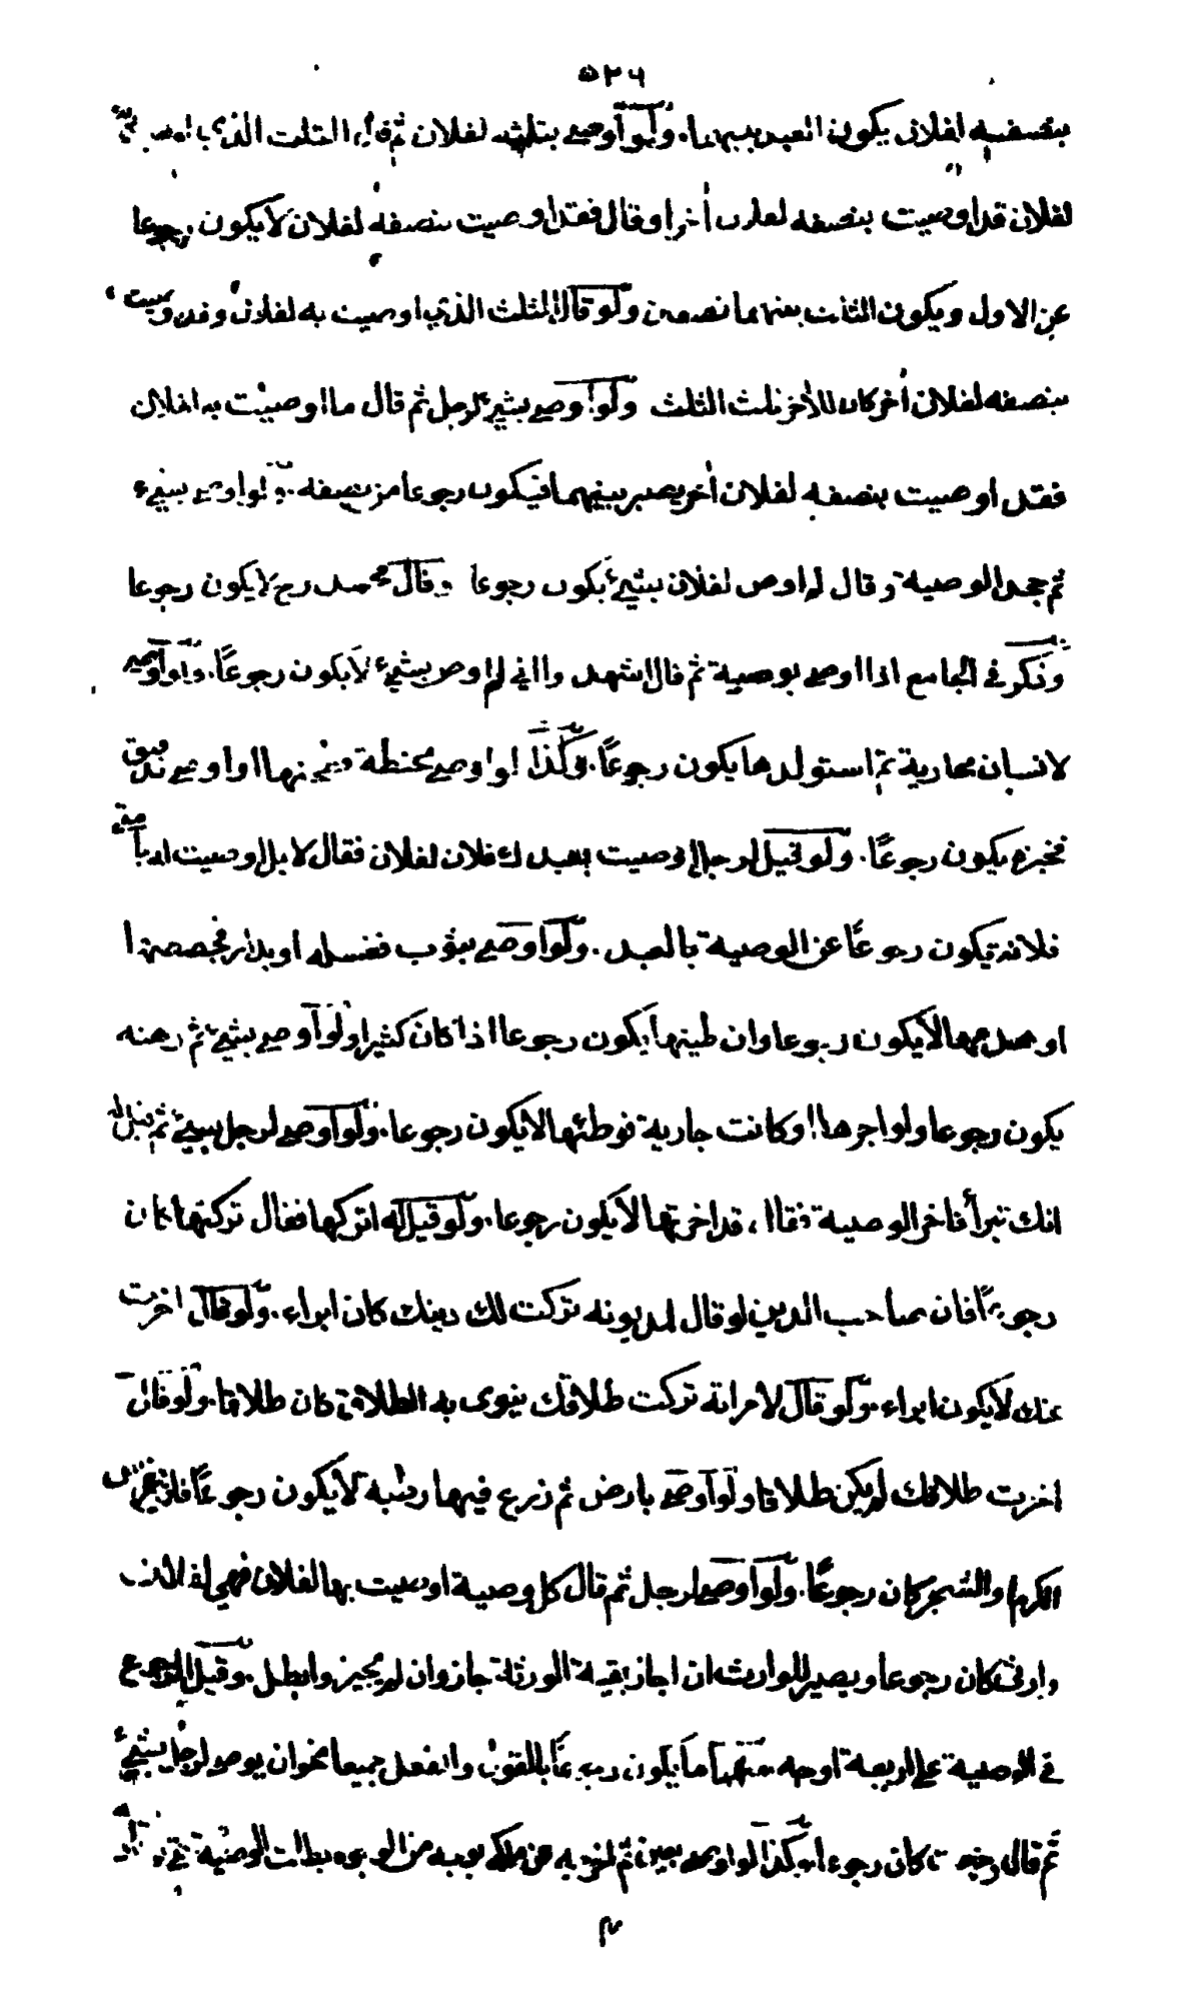 ٥٢٦
بنصفه لفلان يكون العبد بينهما. ولو اوصى بثلثه لفلان ثم قال الثلث الذي
لفلان قد اوصيت بنصفه لفلان أخر او قال فقد اوصيت بنصفه لفلان لا يكون رجوعا
عن الاول ويكون الثلث بينهما نصفين ولو قال الثلث الذي اوصيت به لفلان وقد اوصيت
بنصفه لفلان أخر كان للأخر ثلث الثلث ولو اوصى بشيء لرجل ثم قال ما اوصيت به لفلان
فقد اوصيت بنصفه لفلان أخر يصير بينهما فيكون رجوعا من نصفه. ولو اوصى بشيء
ثم جحد الوصية وقال لم اوص لفلان بشيء يكون رجوعا وقال محمد رح لا يكون رجوعا
وذكر في الجامع اذا اوصى بوصية ثم قال اشهدوا اني لم اوص بشيء لا يكون رجوعًا. ولو اوصى
لانسان بجارية ثم استولدها يكون رجوعًا. وكذا لو اوصى بحنطة ثم طحنها او اوصى بدقيق
فخبزه يكون رجوعًا. ولو قيل لرجل اوصيت بعبدك فلان لفلان فقال لا بل اوصيت له بأمتي
فلانة يكون رجوعًا عن الوصية بالعبد. ولو اوصى بثوب فغسله او بدار فجصصها
او هدمها لا يكون رجوعا وان طينها يكون رجوعا اذا كان كثيرا ولو اوصى بشيء ثم رهنه
يكون رجوعا ولو اجرها او كانت جارية فوطئها لا يكون رجوعا. ولو اوصى لرجل بشيء ثم قيل له
انك تبرأ فاخر الوصية فقال قد اخرتها لا يكون رجوعا. ولو قيل له اتركها فقال تركتها كان
رجوعًا فان صاحب الدين لو قال لمديونه تركت لك دينك كان ابراء. ولو قال اخرت
عنك لا يكون ابراء. ولو قال لامراته تركت طلاقك ينوى به الطلاق كان طلاقا. ولو قال
اخرت طلاقك لم يكن طلاقا ولو اوصى بارض ثم زرع فيها رطبة لا يكون رجوعًا فان غرس
الكرم او الشجر كان رجوعًا. ولو اوصى لرجل ثم قال كل وصية اوصيت بها لفلان فهي لفلان
وارثي كان رجوعا ويصير للوارث ان اجاز بقية الورثة جاز وان لم يجيزوا بطل. وقيل الرجوع
في الوصية على اربعة اوجه منها ما يكون رجوعًا بالقول والفعل جميعا نحو ان يوصى لرجل بشيء
ثم قال رجعت كان رجوعا وكذا لو اوصى بعين ثم اخرجه عن ملكه بوجه من الوجوه بطلت الوصية